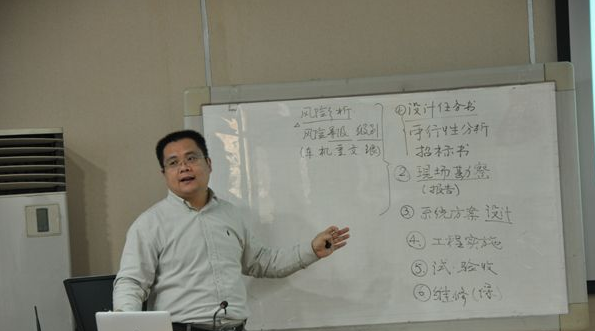 风险分析
风险等级 级别
①设计任务书
可行性分析
招标书
②现场勘察
(报告)
③系统方案设计
④工程实施
⑤试 验收
⑥维修(保)